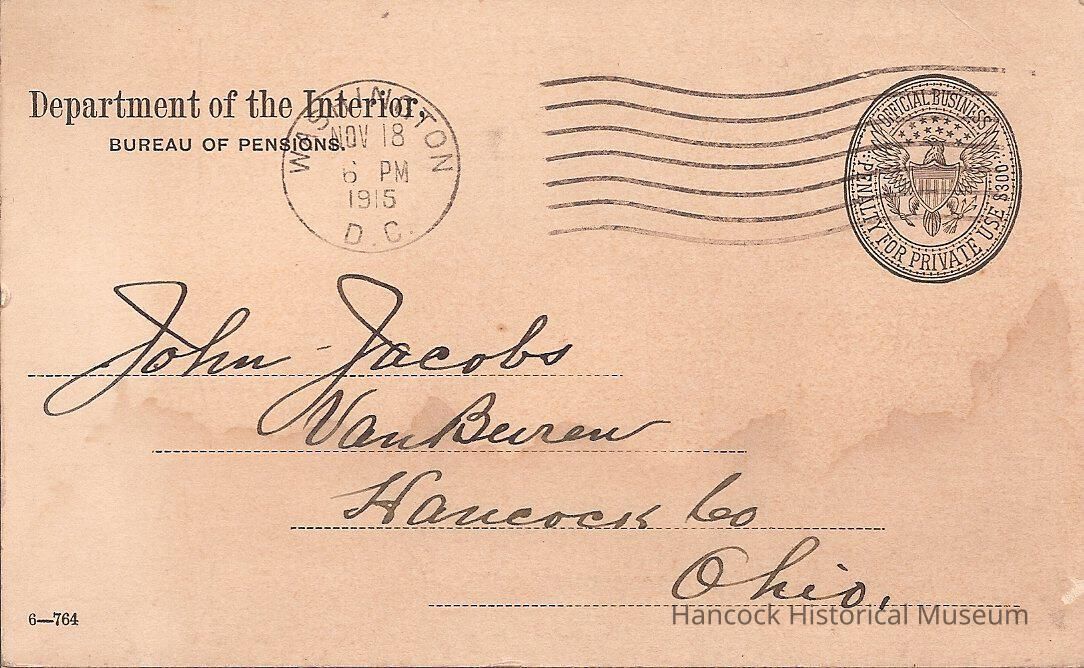 Department of the Interior,
BUREAU OF PENSIONS.
WASHINGTON
NOV 18
6 PM
1915
D.C.
OFFICIAL BUSINESS
PENALTY FOR PRIVATE USE $300
John Jacobs
Van Buren
Hancock Co
Ohio.
6—764
Hancock Historical Museum